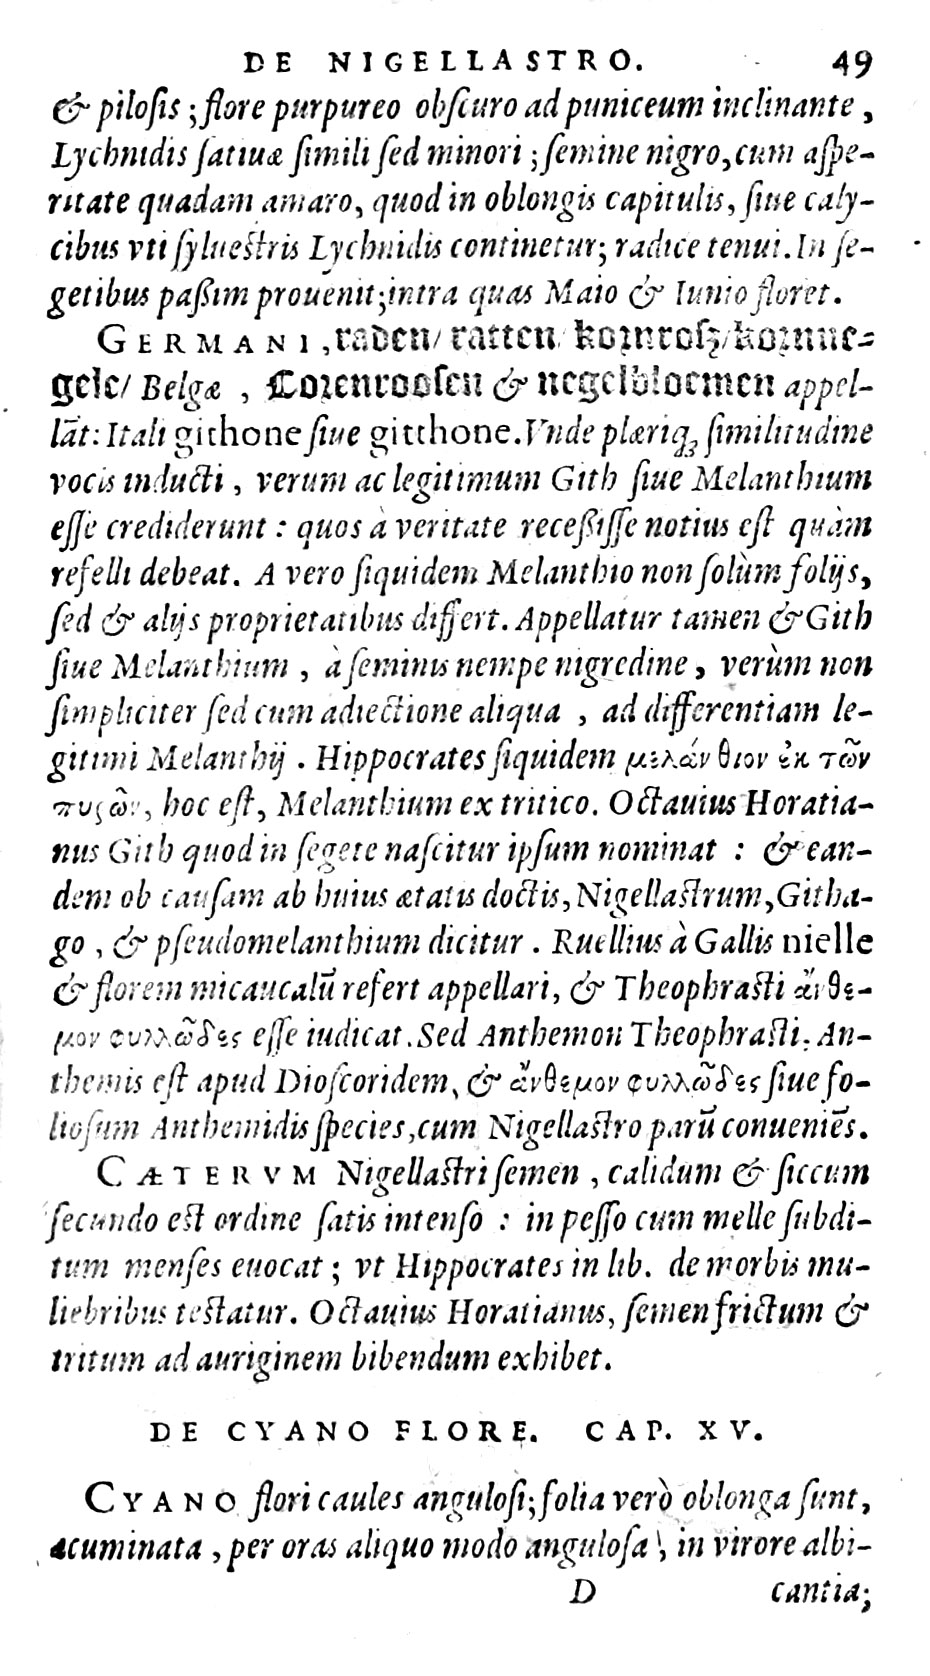 DE NIGELLASTRO. 49
& pilosis ; flore purpureo obscuro ad puniceum inclinante ,
Lychnidis satiuæ simili sed minori ; semine nigro, cum aspe-
ritate quadam amaro, quod in oblongis capitulis, siue caly-
cibus vti syluestris Lychnidis continetur; radice tenui. In se-
getibus paßim prouenit; intra quas Maio & Iunio floret.
GERMANI, raden/ ratten/ kornrosz/ kornne=
gele/ Belgæ , Corenroosen & negelbloemen appel-
lāt: Itali githone siue gitthone. Vnde plæriq; similitudine
vocis inducti , verum ac legitimum Gith siue Melanthium
esse crediderunt : quos à veritate receßisse notius est quàm
refelli debeat. A vero siquidem Melanthio non solùm folijs,
sed & alijs proprietatibus differt. Appellatur tamen & Gith
siue Melanthium , à seminis nempe nigredine , verùm non
simpliciter sed cum adiectione aliqua , ad differentiam le-
gitimi Melanthij . Hippocrates siquidem μελάνθιον ἐκ τῶν
πυρῶν, hoc est, Melanthium ex tritico. Octauius Horatia-
nus Gith quod in segete nascitur ipsum nominat : & ean-
dem ob causam ab huius ætatis doctis, Nigellastrum, Githa-
go , & pseudomelanthium dicitur . Ruellius à Gallis nielle
& florem micaucalū refert appellari, & Theophrasti ἄνθε-
μον φυλλῶδες esse iudicat. Sed Anthemon Theophrasti, An-
themis est apud Dioscoridem, & ἄνθεμον φυλλῶδες siue fo-
liosum Anthemidis species, cum Nigellastro parū conueniēs.
CÆTERVM Nigellastri semen , calidum & siccum
secundo est ordine satis intenso : in pesso cum melle subdi-
tum menses euocat ; vt Hippocrates in lib. de morbis mu-
liebribus testatur. Octauius Horatianus, semen frictum &
tritum ad auriginem bibendum exhibet.
DE CYANO FLORE. CAP. XV.
CYANO flori caules angulosi; folia verò oblonga sunt,
acuminata , per oras aliquo modo angulosa , in virore albi-
D cantia;